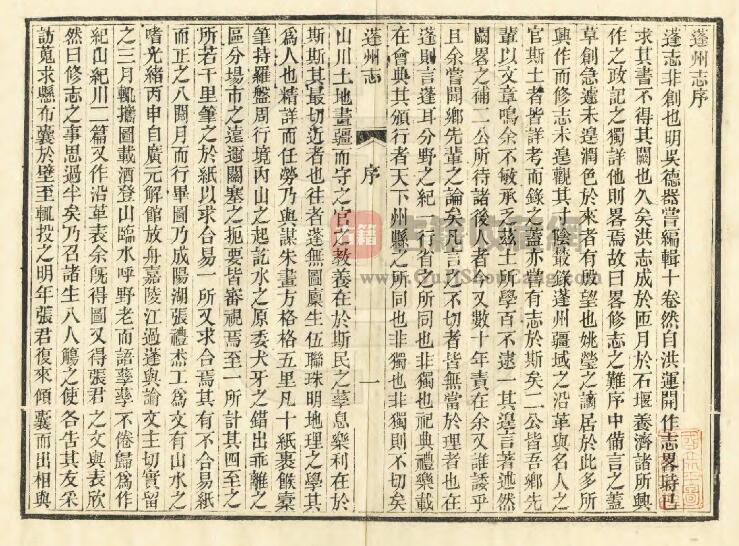 蓬州志序
蓬志非創也明吳德器嘗編輯十卷然自洪運開作志畧時已
求其書不得其闕也久矣洪志成於匝月於石堰養濟諸所興
作之政記之獨詳他則畧焉故曰畧修志之難序中備言之蓋
草創急遽未遑潤色於來者有微望也姚瑩之謫居於此多所
興作而修志未遑觀其寸陰叢錄蓬州疆域之沿革與名人之
官斯土者皆詳考而錄之蓋亦嘗有志於斯矣二公皆吾鄉先
輩以文章鳴余不敏承乏茲土所學百不逮一其遑言著述然
闕畧之補二公所待諸後人者今又數十年責在余又誰諉乎
且余嘗聞鄉先輩之論矣凡言之不切者皆無當於理者也在
蓬則言蓬耳分野之紀一行省之所同也非獨也祀典禮樂載
在會典其頒行者天下州縣之所同也非獨也非獨則不切矣
蓬州志
序
一
山川土地畫疆而守之官之教養在於斯民之孳息樂利在於
斯斯其最切近者也往者蓬無圖廩生伍聯珠明地理之學其
為人也精詳而任勞乃與謀朱畫方格格五里凡十紙裹餱橐
筆持羅盤周行境內山之起訖水之原委犬牙之錯出乖離之
區分場市之遠邇關塞之扼要皆審視焉至一所計其四至之
所若干里筆之於紙以求合易一所又求合焉其有不合易紙
而正之八閱月而行畢圖乃成陽湖張禮焘工為文有山水之
嗜光緒丙申自廣元解館放舟嘉陵江過蓬與論文主切實留
之三月輒攜圖載酒登山臨水呼野老而語孳孳不倦歸為作
紀山紀川二篇又作沿革表余旣得圖又得張君之文與表欣
然曰修志之事思過半矣乃召諸生八人觴之使各告其友采
訪蒐求懸布囊於壁至輒投之明年張君復來傾囊而出相與
古籍收藏網
www.GujiShouCang.com